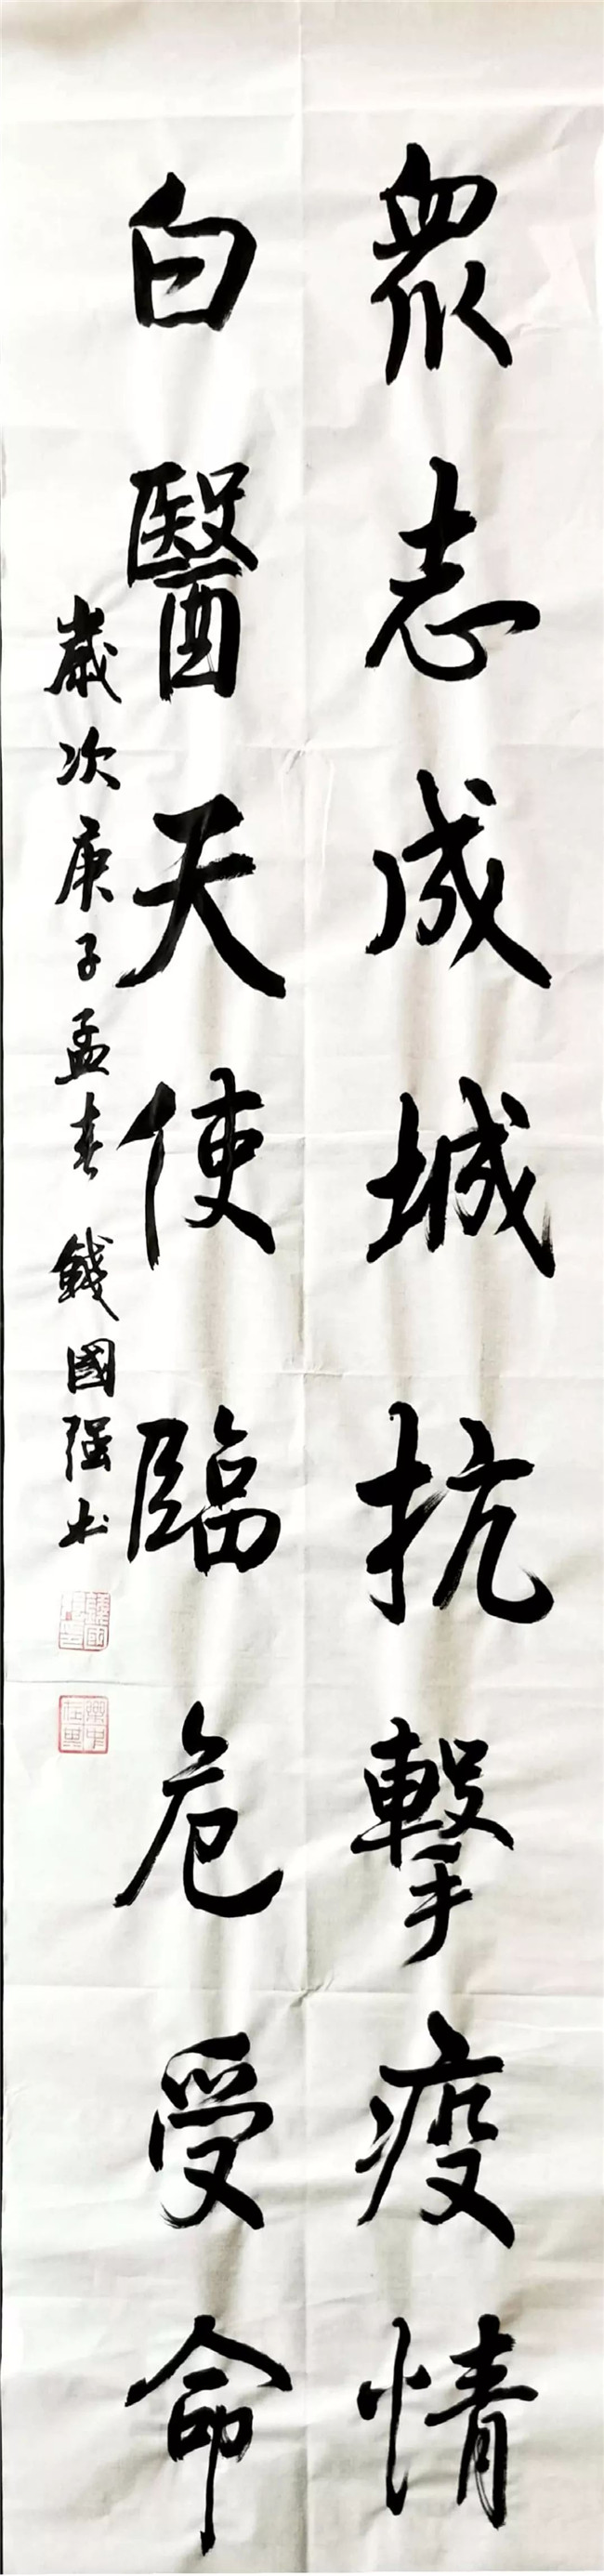 眾志成城抗擊疫情
白醫天使臨危受命
歲次庚子孟春錢國强书